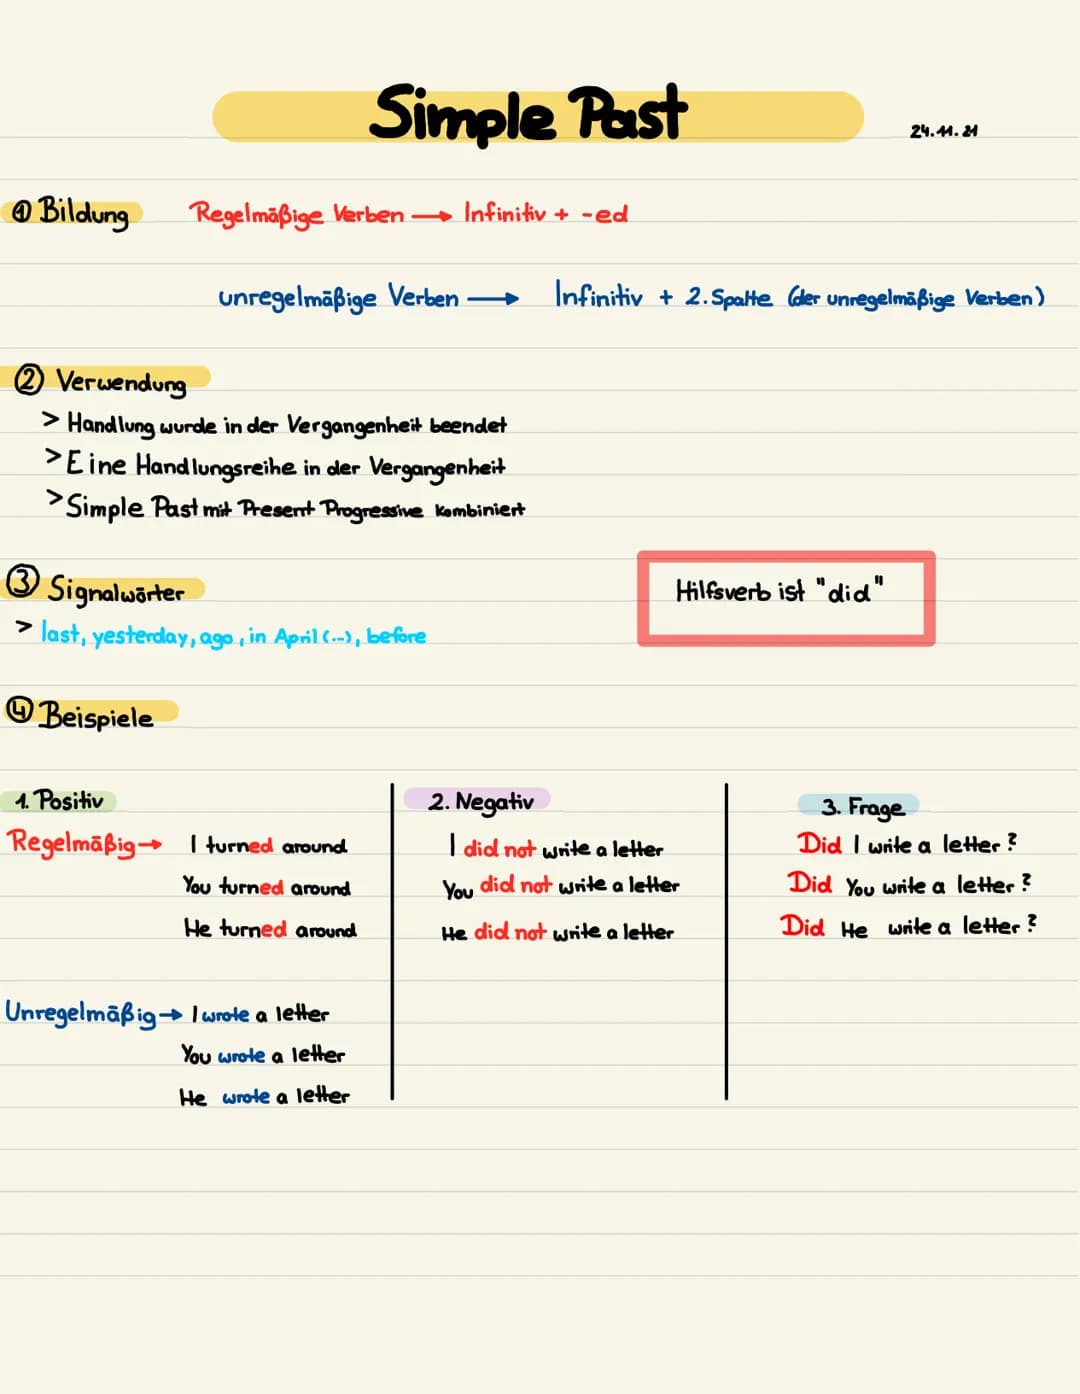 Simple Past
24.11.21
① Bildung Regelmäßige Verben → Infinitiv + -ed
unregelmäßige Verben → Infinitiv + 2. Spalte (der unregelmäßige Verben)
② Verwendung
> Handlung wurde in der Vergangenheit beendet
> Eine Handlungsreihe in der Vergangenheit
> Simple Past mit Present Progressive kombiniert
③ Signalwörter
Hilfsverb ist "did"
> last, yesterday, ago, in April (...), before
④ Beispiele
1. Positiv
Regelmäßig → I turned around
You turned around
He turned around
Unregelmäßig → I wrote a letter
You wrote a letter
He wrote a letter
2. Negativ
I did not write a letter
You did not write a letter
He did not write a letter
3. Frage
Did I write a letter?
Did You write a letter?
Did He write a letter?